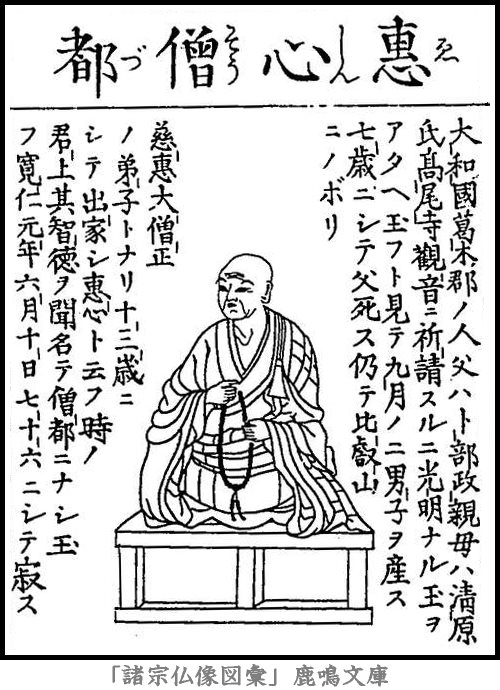 惠心僧都
ゑしんそうづ
大和國葛木郡ノ人父ハト部政親母ハ清原
氏髙尾寺觀音ニ祈請スルニ光明ナル玉ヲ
アタヘ玉フト見テ九月ノニ男子ヲ産ス
七歳ニシテ父死ス仍テ比叡山
ニノボリ
慈惠大僧正
ノ弟子トナリ十三歳ニ
シテ出家シ惠心ト云フ時ノ
君上其智徳ヲ聞名テ僧都ニナシ玉
フ寛仁元年六月十日七十六ニシテ寂ス
「諸宗仏像図彙」鹿鳴文庫